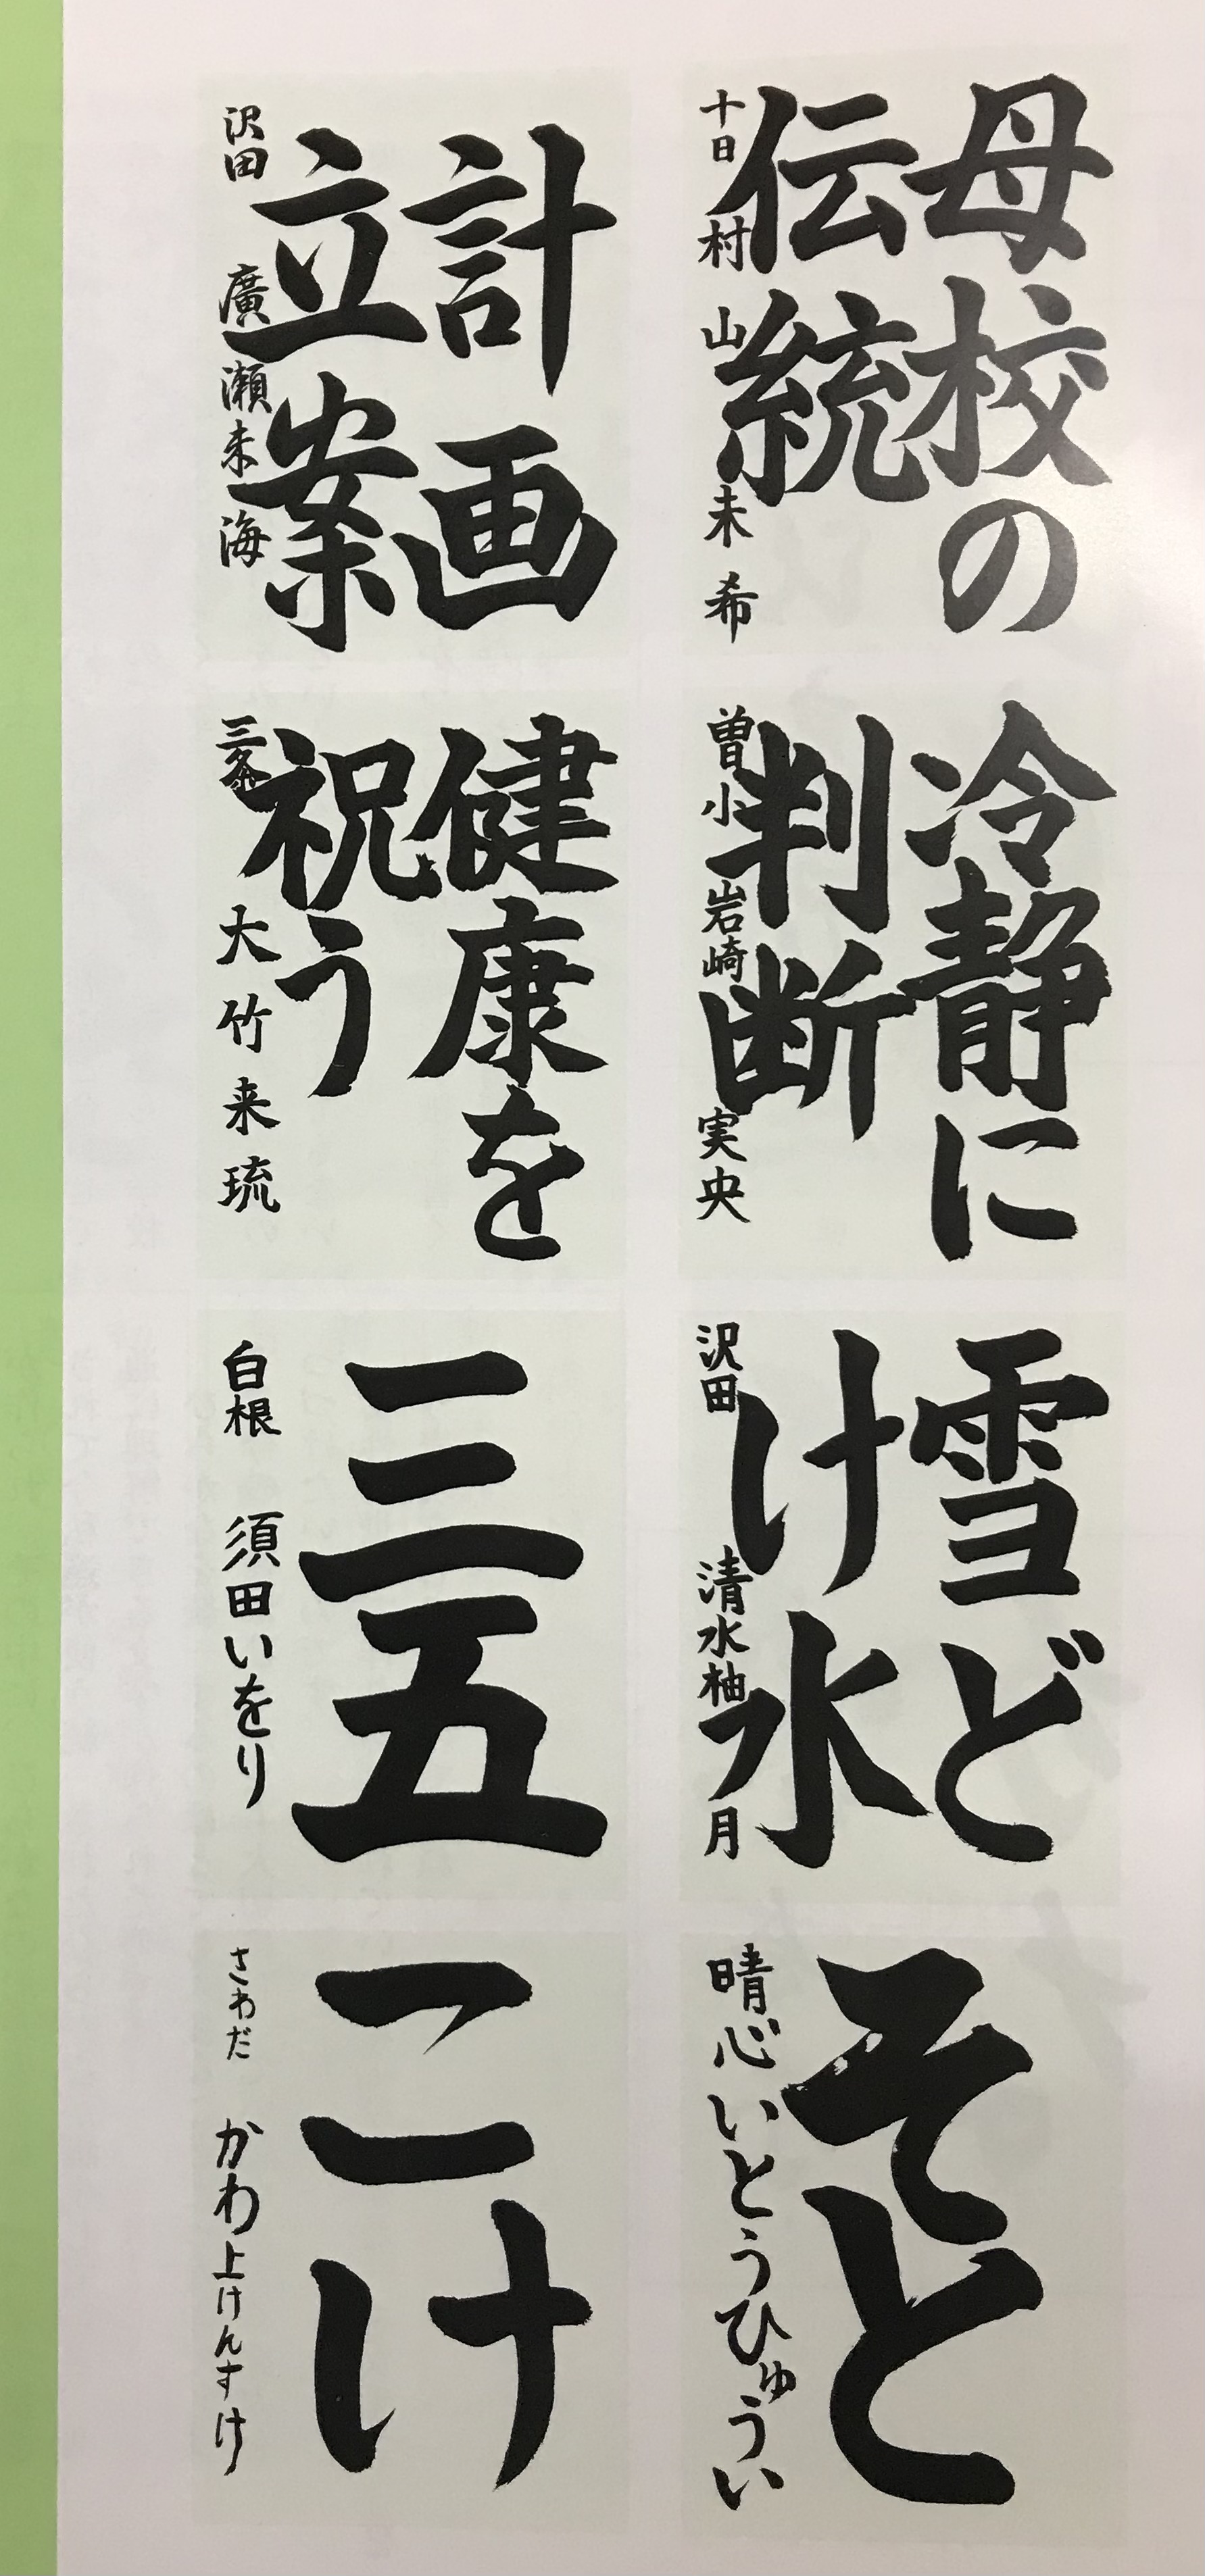 母校の
伝統
十日村 山未希
冷静に
判断
曽小 岩崎実央
雪ど
け水
沢田 清水柚月
そと
晴心 いとうひゅうい
計画
立案
沢田 廣瀬未海
健康を
祝う
三条 大竹来琉
三五
白根 須田いをり
こけ
さわだ かわ上けんすけ